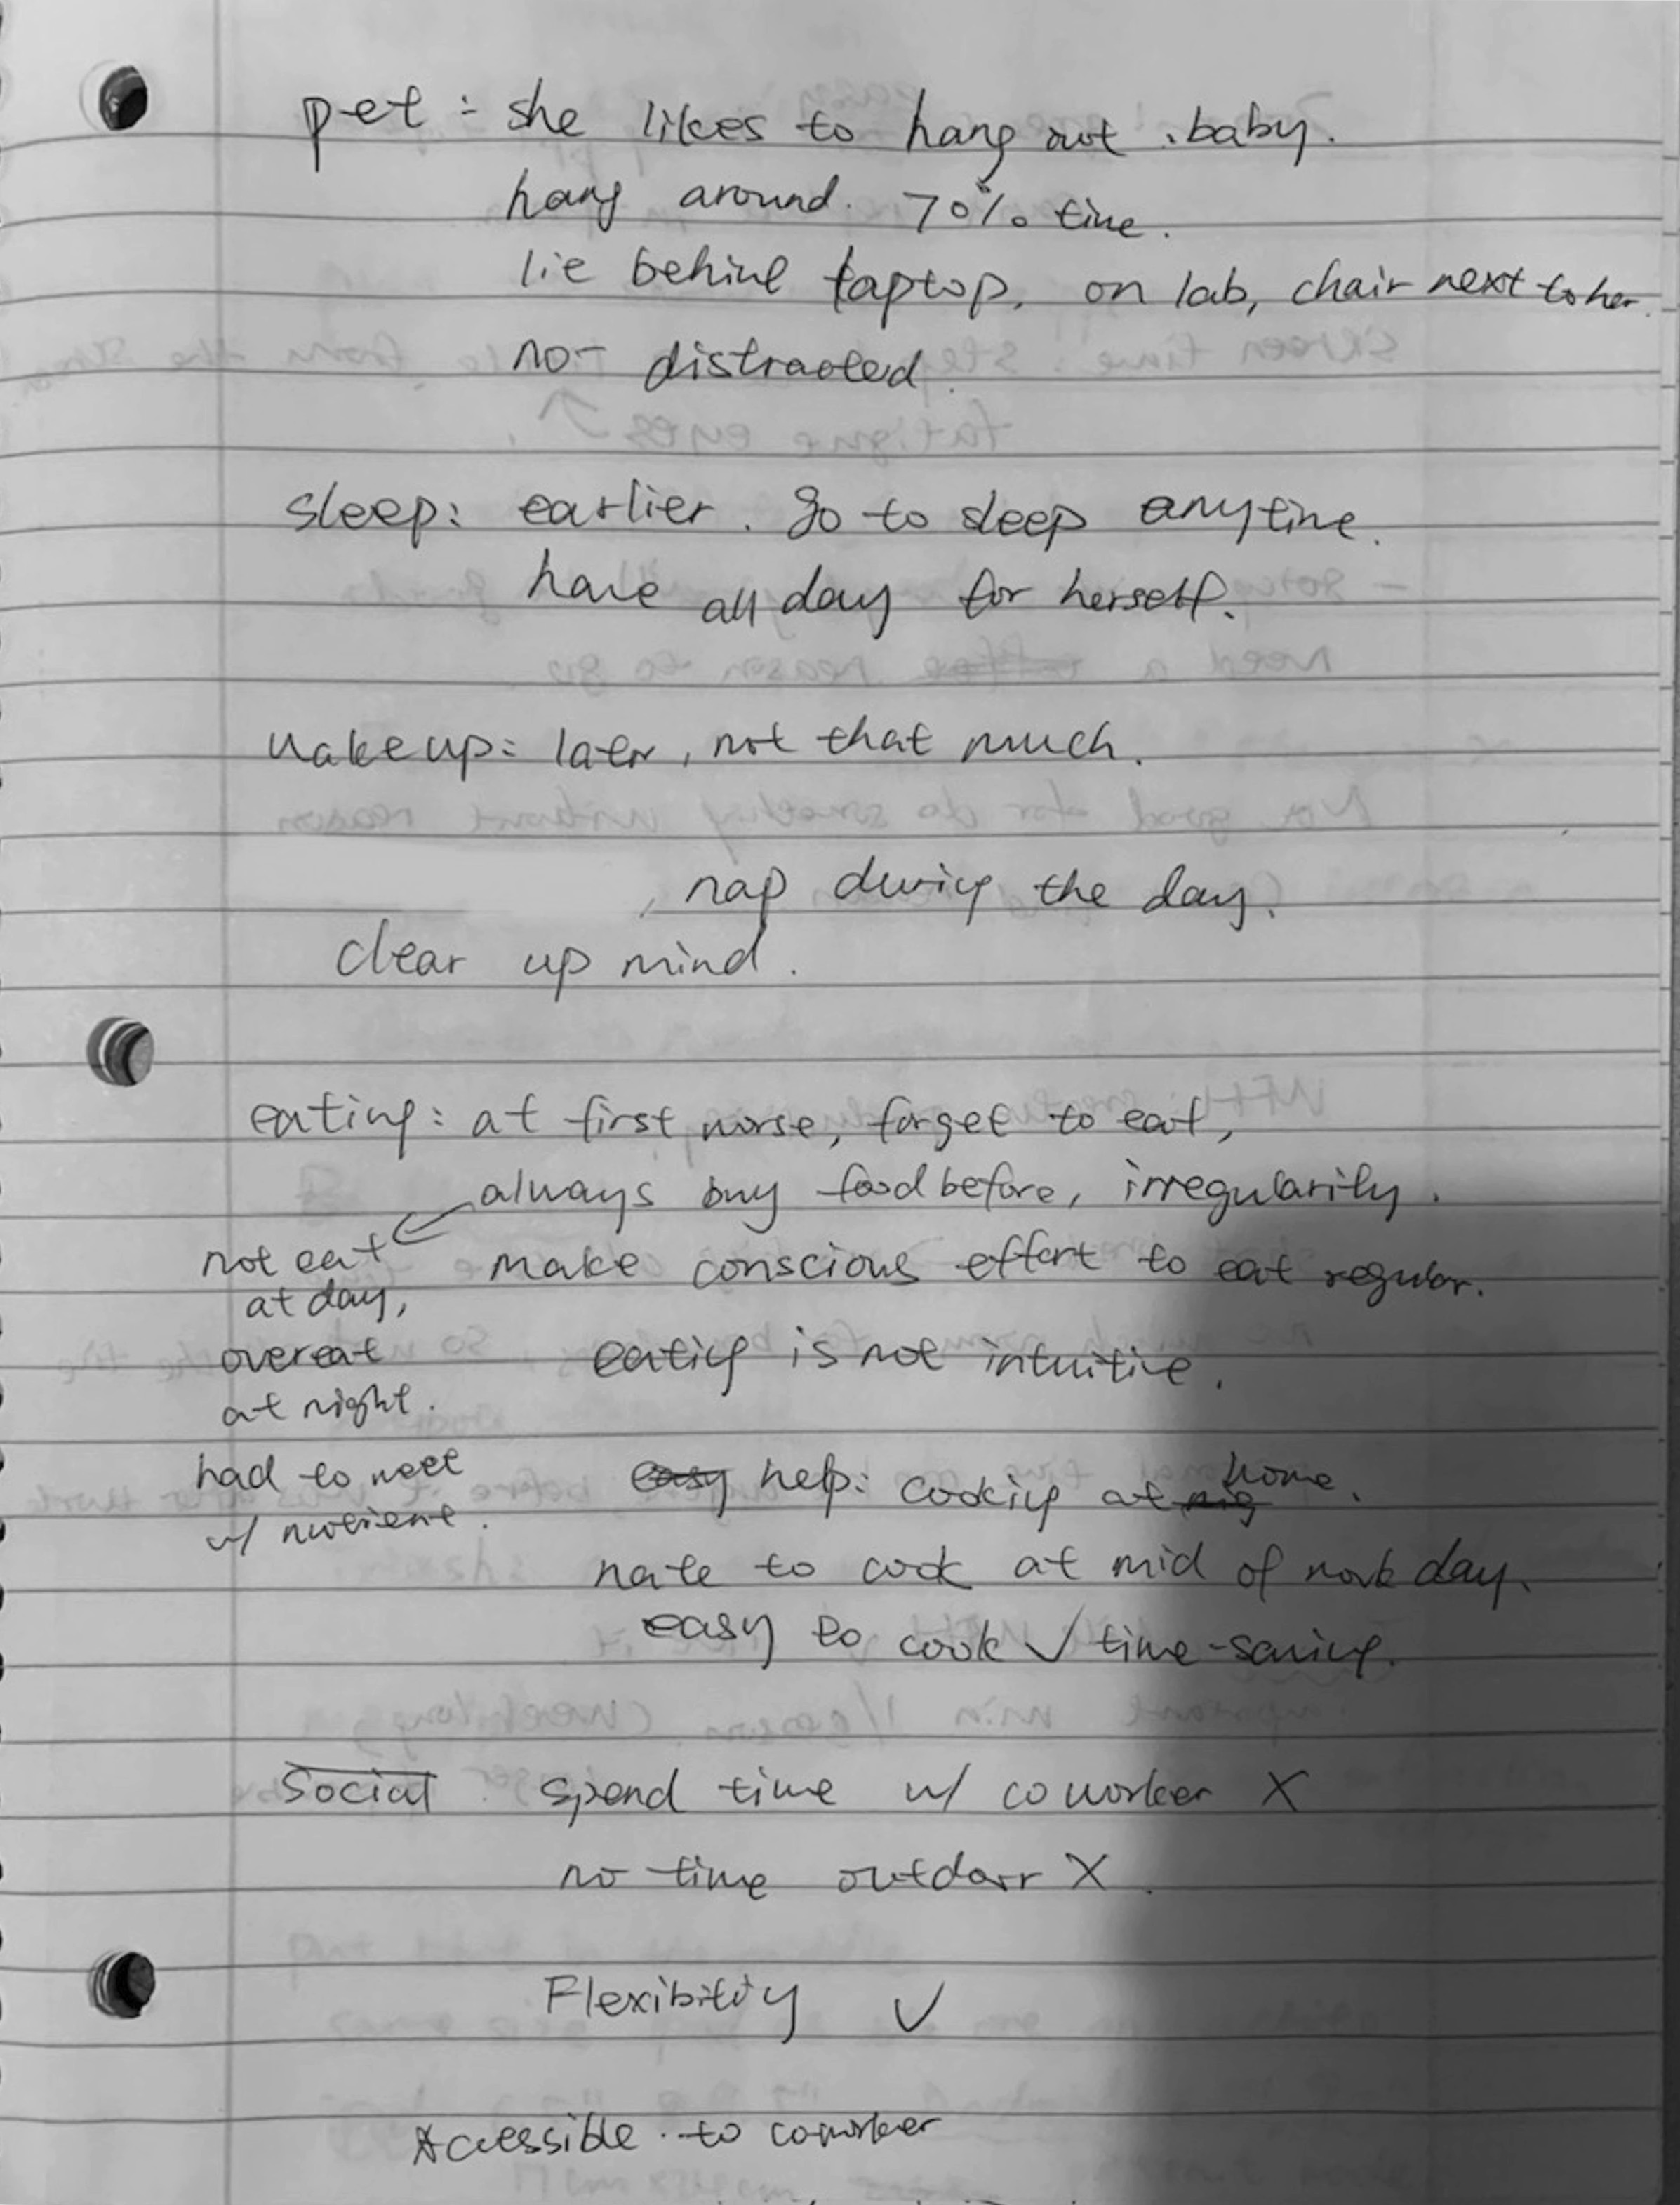 pet: she likes to hang out. baby.
hang around. 70% time.
lie behind laptop, on lab, chair next to her.
not distracted.
sleep: earlier. go to sleep anytime.
have all day for herself.
wake up: later, not that much.
, nap during the day.
clear up mind.
eating: at first worse, forget to eat,
always buy food before, irregularity.
not eat
at day,
overeat
at night.
make conscious effort to eat regular.
eating is not intuitive.
had to meet
w/ nutrient.
easy help: cooking at home.
hate to cook at mid of work day.
easy to cook ✓ time-saving.
Social spend time w/ coworker X
no time outdoor X.
Flexibility ✓
Accessible to coworker